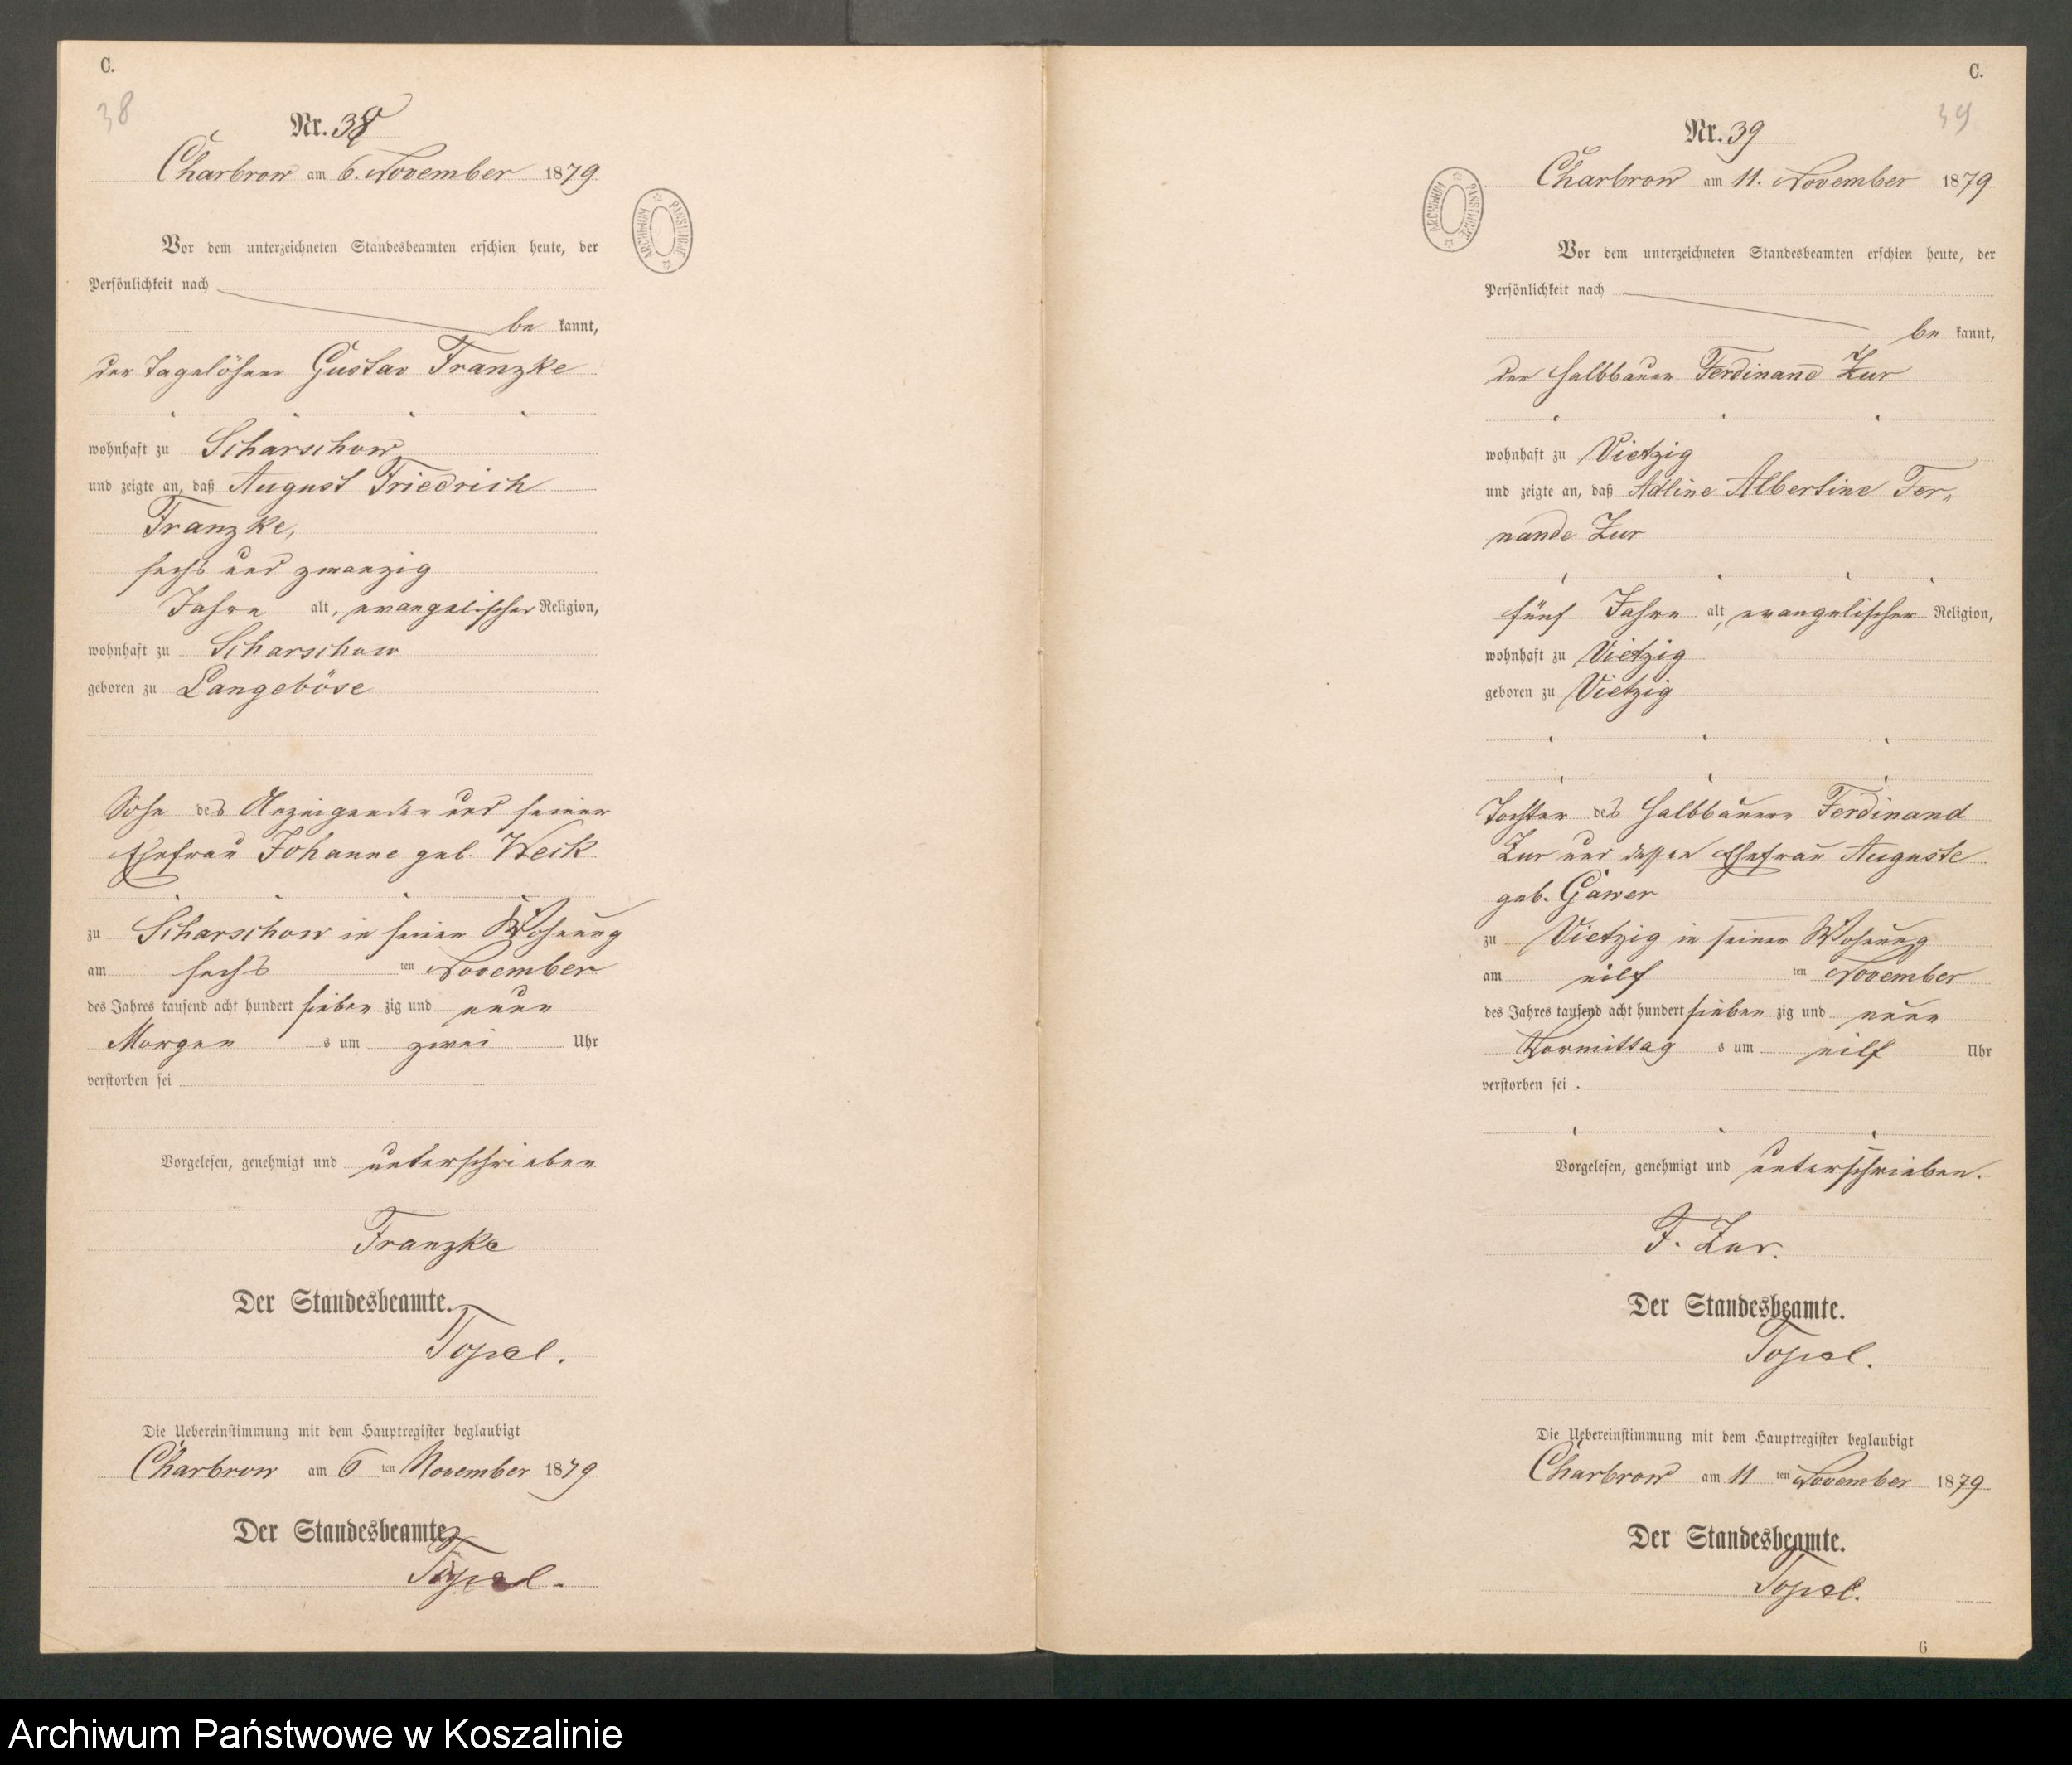 C.
38
Nr. 38
Charbrow am 6. November 1879
ARCHIWUM PAŃSTWOWE
Vor dem unterzeichneten Standesbeamten erschien heute, der
Persönlichkeit nach
be kannt,
der Tagelöhner Gustav Franzke
wohnhaft zu Scharschow
und zeigte an, daß August Friedrich
Franzke,
sechs und zwanzig
Jahre alt, evangelischer Religion,
wohnhaft zu Scharschow
geboren zu Langeböse
Sohn des Anzeigenden und seiner
Ehefrau Johanne geb. Weik
zu Scharschow in seiner Wohnung
am sechs ten November
des Jahres tausend acht hundert sieben zig und neun
Morgen s um zwei Uhr
verstorben sei
Vorgelesen, genehmigt und unterschrieben
Franzke
Der Standesbeamte.
Topel.
Die Uebereinstimmung mit dem Hauptregister beglaubigt
Charbrow am 6 ten November 1879
Der Standesbeamte.
Topel.
C.
39
Nr. 39
Charbrow am 11. November 1879
ARCHIWUM PAŃSTWOWE
Vor dem unterzeichneten Standesbeamten erschien heute, der
Persönlichkeit nach
be kannt,
der Halbbauer Ferdinand Zur
wohnhaft zu Vietzig
und zeigte an, daß Adline Albertine Fer„
nande Zur
fünf Jahre alt, evangelischer Religion,
wohnhaft zu Vietzig
geboren zu Vietzig
Tochter des Halbbauern Ferdinand
Zur und dessen Ehefrau Auguste
geb. Gawer
zu Vietzig in seiner Wohnung
am eilf ten November
des Jahres tausend acht hundert sieben zig und neun
Vormittag s um eilf Uhr
verstorben sei .
Vorgelesen, genehmigt und unterschrieben.
F. Zur.
Der Standesbeamte.
Topel.
Die Uebereinstimmung mit dem Hauptregister beglaubigt
Charbrow am 11 ten November 1879
Der Standesbeamte.
Topel.
6
Archiwum Państwowe w Koszalinie